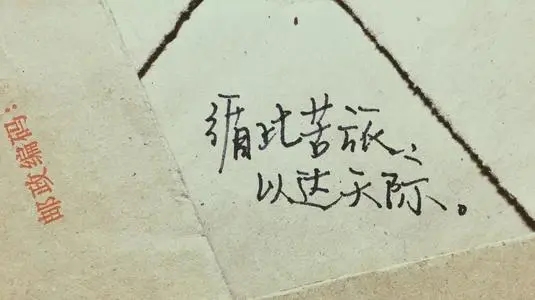 邮政编码：
循此苦旅，
以达天际。